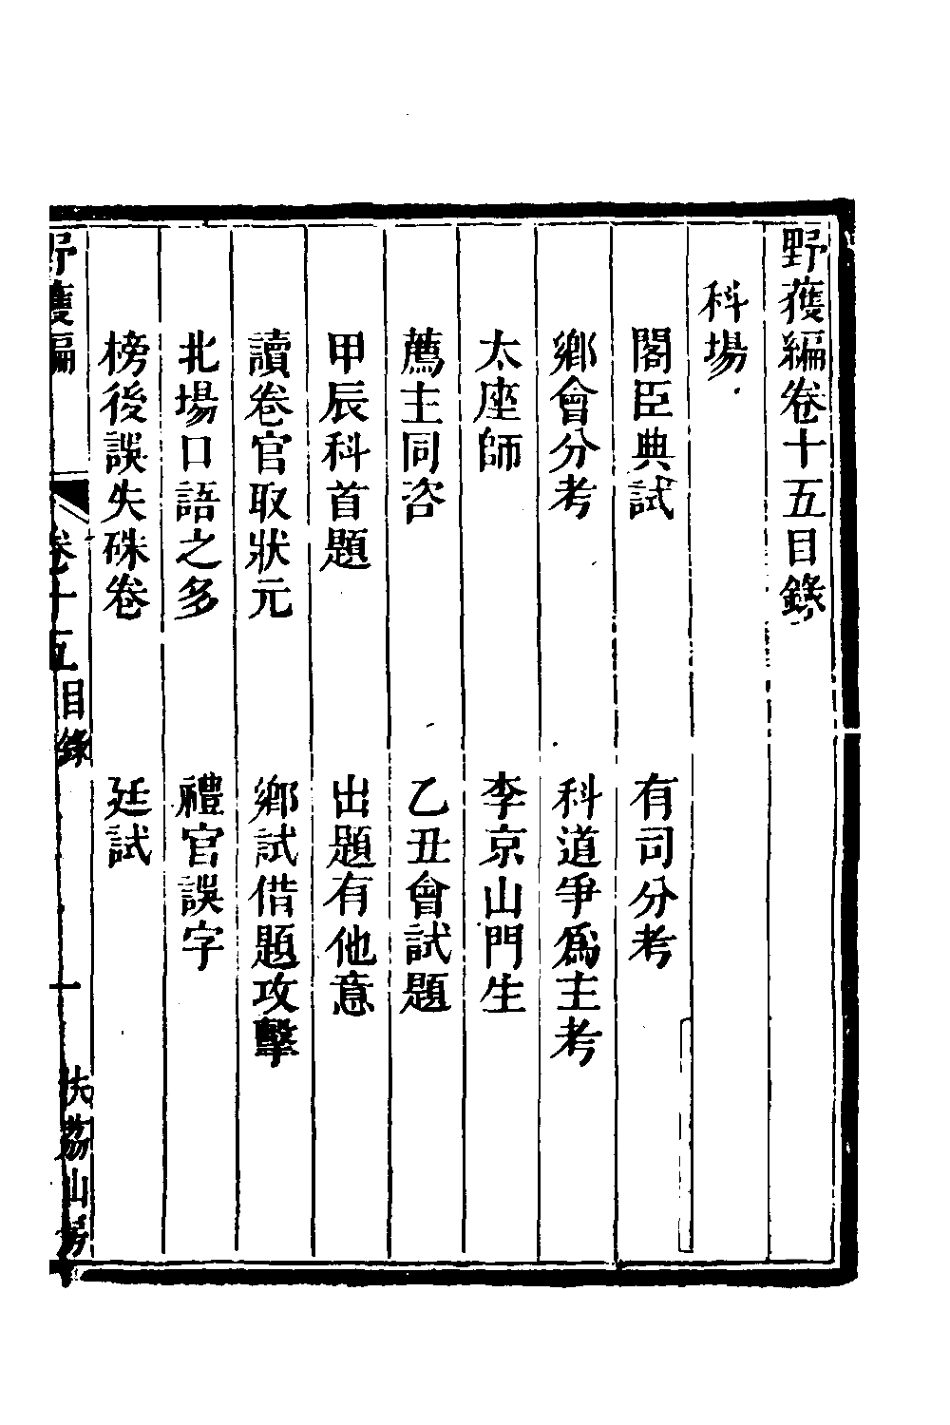 野獲編卷十五目錄
科場
閣臣典試　有司分考
鄉會分考　科道爭為主考
太座師　李京山門生
薦主同咨　乙丑會試題
甲辰科首題　出題有他意
讀卷官取狀元　鄉試借題攻擊
北場口語之多　禮官誤字
榜後誤失硃卷　廷試
野獲編　卷十五目錄　一　扶荔山房